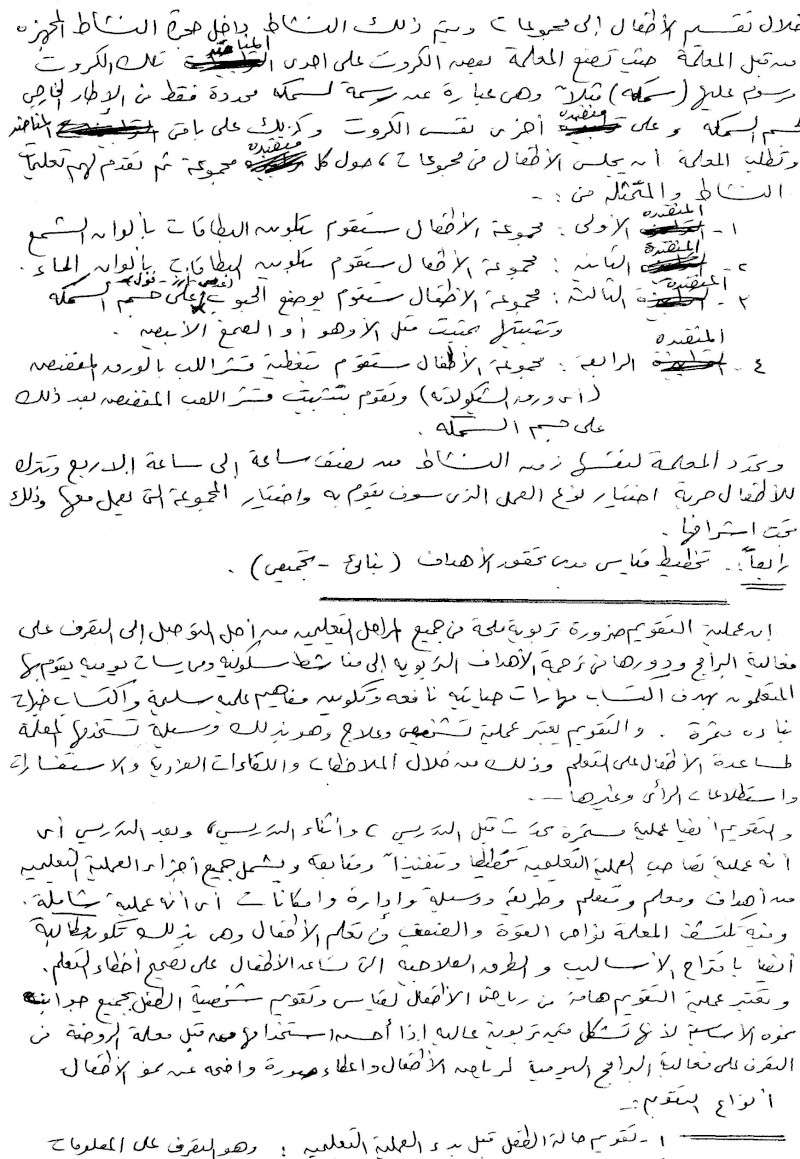 خلال تقسيم الأطفال إلى مجموعات ويتم ذلك النشاط داخل حجرة النشاط المجهزه
من قبل المعلمة حيث تضع المعلمة بعض الكروت على احدى المناضد تلك الكروت
مرسوم عليها (سمكه) مثلاً وهى عبارة عن رسمة لسمكه محددة فقط من الإطار الخارجى
لجسم السمكه وعلى منضده أخرى نفس الكروت وكذلك على باقى المناضد
وتطلب المعلمة أن يجلس الأطفال فى مجموعات، حول كل منضده مجموعة ثم تقدم لهم تعليمات
النشاط والمتمثله فى :-
١- المنضده الأولى : مجموعة الأطفال ستقوم بتلوين البطاقات بألوان الشمع
٢- المنضدة الثانيه : مجموعة الأطفال ستقوم بتلوين البطاقات بألوان الماء .
٣- المنضده الثالثة : مجموعة الأطفال ستقوم بوضع الحبوب على جسم السمكه
وتثبيتها بمثبت مثل الأوهو أو الصمغ الأبيض .
٤- المنضده الرابعة : مجموعة الأطفال ستقوم بتغطية قشر اللب بالورق المفضض
(أى ورق الشيكولاته) وتقوم بتثبيت قشر اللب المفضض بعد ذلك
على جسم السمكه .
وتحدد المعلمة لنفسها زمن النشاط من نصف ساعة إلى ساعة إلا ربع وتترك
للأطفال حرية اختيار نوع العمل الذى سوف يقوم به واختيار المجموعة التى يعمل معها وذلك
تحت اشرافها .
رابعاً :- تخطيط قياس مدى تحقق الأهداف (بنائى - تجميعى) .
إن عملية التقويم ضرورة تربوية ملحة فى جميع المراحل التعليميه من أجل التوصل إلى التعرف على
فعالية البرامج ودورها فى ترجمة الأهداف التربويه إلى مناشط سلوكية وممارسات يوميه يقوم بها
المتعلمون بهدف اكتساب مهارات حياتيه نافعه وتكوين مفاهيم علميه سليمة واكتساب خبرات
بناءه مثمرة . والتقويم يعتبر عملية تشخيص وعلاج وهو بذلك وسيلة تستخدمها المعلمة
لمساعدة الأطفال على التعلم وذلك من خلال الملاحظات واللقاءات الفردية والاستفسارات
واستطلاعات الرأى وغيرها ...
والتقويم أيضا عملية مستمرة تحدث قبل التدريس ، وأثناء التدريس ، وبعد التدريس أى
أنه عملية تصاحب العملية التعليميه تخطيطا وتنفيذاً ومتابعة ويشمل جميع أجزاء العملية التعليميه
من أهداف ومعلم ومتعلم وطريقة ووسيلة وإدارة وامكانات أى أنه عملية شاملة .
وفيه تكتشف المعلمة نواحى القوة والضعف فى تعلم الأطفال وهى بذلك تكون مطالبة
أيضا باقتراح الأساليب والطرق العلاجيه التى تساعد الأطفال على تصحيح أخطاء التعلم .
وتعتبر عملية التقويم هامة فى رياض الأطفال لقياس وتقويم شخصية الطفل بجميع جوانب
نموه الأساسية لأنها تشكل قيمة تربوية عاليه إذا أحسن استخدامها من قبل معلمة الروضة فى
التعرف على فعالية البرامج اليومية لرياض الأطفال واعطاء صورة واضحه عن نمو الأطفال
أنواع التقويم :-
١- تقويم حالة الطفل قبل بدء العملية التعليميه : وهو التعرف على المعلومات